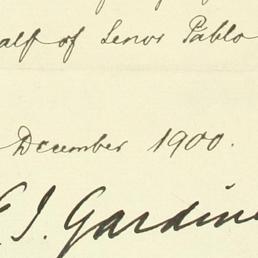 half of Senor Pablo
December 1900.
E. J. Gardine